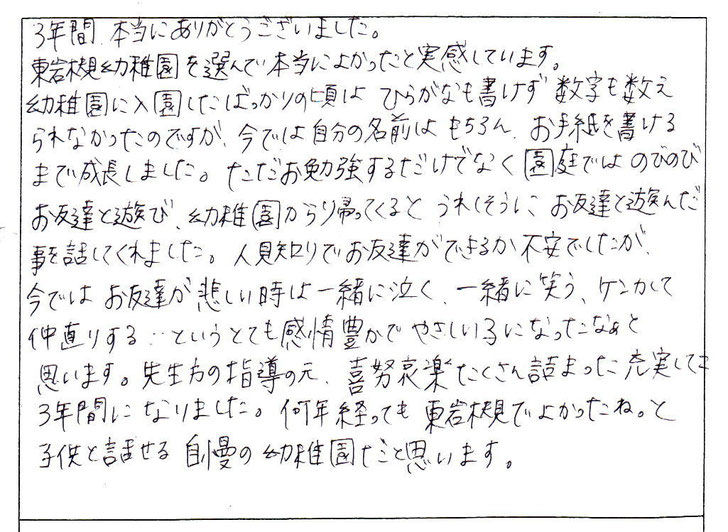 3年間、本当にありがとうございました。
東岩槻幼稚園を選んで本当によかったと実感しています。
幼稚園に入園したばっかりの頃は ひらがなも書けず 数字も数え
られなかったのですが、今では自分の名前は もちろん、お手紙を書ける
まで成長しました。ただお勉強するだけでなく 園庭では のびのび
お友達と遊び、幼稚園から帰ってくると うれしそうに、お友達と遊んだ
事を話してくれました。人見知りでお友達ができるか不安でしたが、
今では お友達が 悲しい時は一緒に泣く、一緒に笑う、ケンカして
仲直りする…というとても感情豊かで やさしい子になったなぁと
思います。先生方の指導の元、喜努哀楽たくさん詰まった充実した
3年間になりました。何年経っても 東岩槻でよかったね。と
子供と話せる 自慢の幼稚園だと思います。